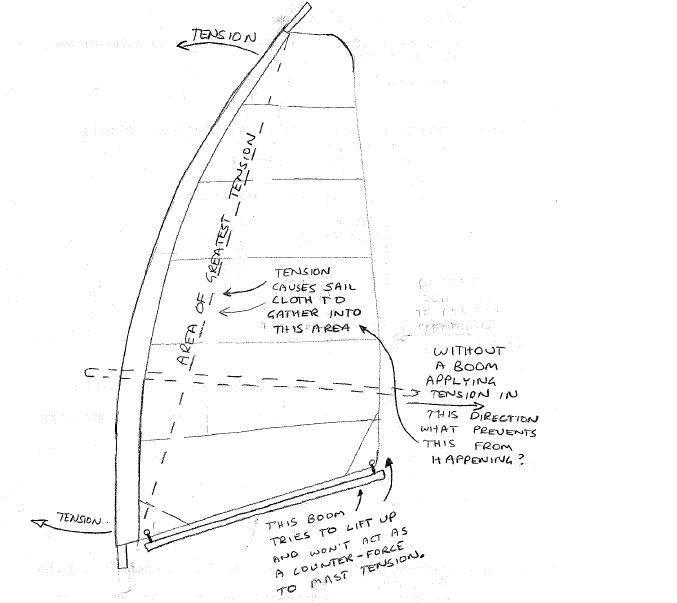 TENSION
AREA OF GREATEST TENSION
TENSION
CAUSES SAIL
CLOTH TO
GATHER INTO
THIS AREA
WITHOUT
A BOOM
APPLYING
TENSION IN
THIS DIRECTION
WHAT PREVENTS
THIS FROM
HAPPENING?
TENSION
THIS BOOM
TRIES TO LIFT UP
AND WON'T ACT AS
A COUNTER-FORCE
TO MAST TENSION.